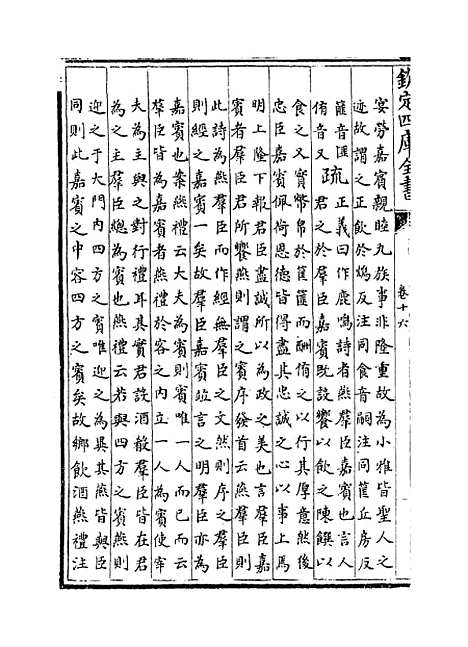 欽定四庫全書
卷十六
宴勞嘉賓親睦九族事非隆重故為小雅皆聖人之
迹故謂之正飲於鴆反注同食音嗣注同篚丘房反
篚音匪侑音又疏正義曰作鹿鳴詩者燕羣臣嘉賓也言人
君之於羣臣嘉賓既設饗以飲之陳饌以
食之又實幣帛於筐篚而酬侑之以行其厚意然後
忠臣嘉賓佩荷恩德皆得盡其忠誠之心以事上焉
明上隆下報君臣盡誠所以為政之美也言羣臣嘉
賓者羣臣君所饗燕則謂之賓序發首云燕羣臣則
此詩為燕羣臣而作經無羣臣之文然則序之羣臣
則經之嘉賓一矣故羣臣嘉賓竝言之明羣臣亦為
嘉賓也案燕禮云大夫為賓則賓唯一人而已而云
羣臣皆為嘉賓者燕禮於客之內立一人為賓使宰
夫為主與之對行禮耳其實君設酒殽羣臣皆在君
為之主羣臣總為賓也燕禮云若與四方之賓燕則
迎之于大門內四方之賓唯迎之為異其燕皆與臣
同則此嘉賓之中容四方之賓矣故鄉飲酒燕禮注